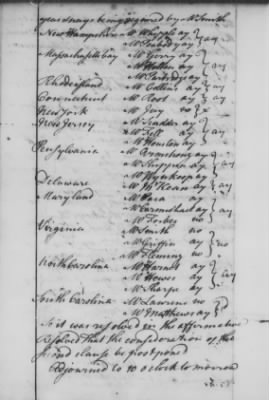 yeas & nays being required by Mr Smith
New Hampshire Mr Whipple ay } ay
Mr Peabody ay
Massachusetts bay Mr Gerry ay
Mr Holten ay } ay
Mr Partridge ay
Rhode island Mr Collins ay } ay
Connecticut Mr Root ay } ay
New York Mr Jay no
New Jersey Mr Scudder ay
Mr Fell ay } ay
Mr Houston ay
Pensylvania Mr Armstrong ay
Mr Shippen ay } ay
Mr Wynkoop ay
Delaware Mr McKean ay } ay
Maryland Mr Paca ay
Mr Carmichael ay } ay
Mr Forbes no
Virginia Mr Smith no
Mr Griffin ay } no
Mr Fleming no
North Carolina Mr Harnet ay
Mr Hewes ay } ay
Mr Sharpe ay
South Carolina Mr Laurens no
Mr Mathews ay
So it was resolved in the affirmative
Resolved that the consideration of the
second clause be postponed
Adjourned to 10 o Clock to morrow